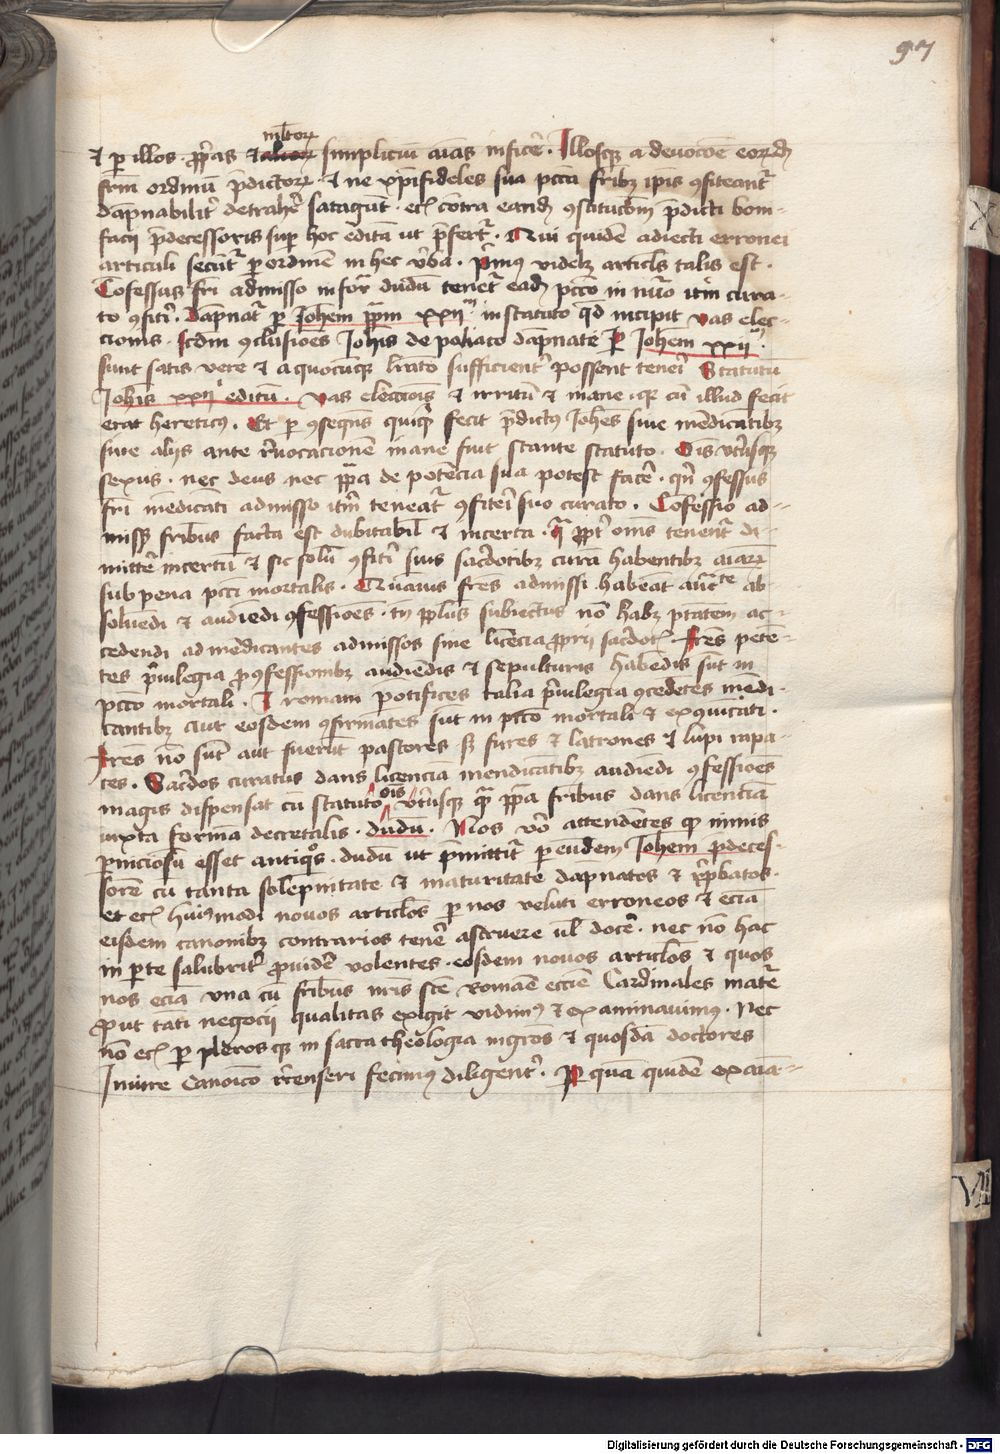 97
mltor
⁊ p illos ꝓpas ⁊ alior simplicium aias infice͛. Illosqꝫ a deuocoe eorūdē
frm ordinū p̄dictorꝝ ⁊ ne xpifideles sua pcca fribꝫ ipis ꝯfiteant᷑
dāpnabilit᷑ detrahe͛ satagūt. ecz contra eandē ꝯstitucōm p̄dicti boni-
facij p̄decessoris sup hoc editā ut p̄fert᷑. Qui quidē adiecti erronei
articuli secūt᷑ p ordinē in hec v̄ba. p̄mus videlꝫ articls talis est.
Cōfessus fri admisso in forā dudū tenet᷑ eadē pcca in nūo itm cura-
to ꝯfiti. Dāpnat᷑ p Johem ppam xxij in statuto qd incipit vas elec-
cionis. Itdm ꝯclusiōes Johis de poliaco dāpnate p Johem xxij
sunt satis vere ⁊ a quocūqꝫ lrato sufficient᷑ possent teneri Statutū
Johis xxij editū. vas eleccionis ⁊ irritū ⁊ inane. qꝫ cū illud fecit
erat hereticus. Et p ꝯseqns quicqd fecit p̄dictus Johes siue mēdicātibꝫ
siue alijs ante r̄uocacionē inane fuit stante statuto. Ois vtriusqꝫ
sexus. nec deus nec ppa de potēcia sua potest face͛. qn ꝯfessus
fri mēdicāti admisso itm teneat᷑ ꝯfiteri suo curato. Cōfessio ad-
missꝭ fribus facta est dubitabil ⁊ incerta. q̄ ppt om̄s tenent᷑ di-
mitte͛ incertū ⁊ sic solū ꝯfiti suis sacdotibꝫ curā habentibꝫ aiarꝝ
sub pena pcci mortalis. Quāuis fres admissi habeāt auctte ab-
soluēdi ⁊ audiēdi ꝯfessiōes. tn pplus subiectus nō habꝫ ptātem ac-
cedendi ad mēdicantes admissos sine licēcia proprij sacdot᷑. Fres petē-
tes p̄uilegia pro ꝯfessionibꝫ audiēdis ⁊ sepulturis habēdis sūt in
pcco mortali. Et romani pōtifices talia p̄uilegia ꝯcedētes mēdi-
cantibꝫ aut eosdem ꝯfirmātes sūt in pcco mortali ⁊ excōicati.
Fres nō sūt aut fuerūt pastores sꝫ fures ⁊ latrones ⁊ lupi rapa-
ces. Sacdos curatus dans licenciā mendicātibꝫ audiēdi ꝯfessiōes
magis dispensat cū statuto ois vtriusqꝫ q̄ ppa fribus dans licentiā
iuxta formā decretalis. dudū. Nos vo attendētes qꝫ nimis
pniciosū esset antiqos. dudū ut p̄mittit᷑ p eūdem Johem p̄deces-
sorē cū tanta solēpnitate ⁊ maturitate dāpnatos ⁊ rep̄batos.
et ecz huiusmodi nouos articlos p nos veluti erroneos ⁊ eciā
eisdem canonibꝫ contrarios tene͛ asseruere ul doce͛. nec nō hac
in pte salubrit᷑ prouide͛ volentes. eosdem nouos articlos ⁊ quos
nos eciā vna cū fribus nris sce Romane eccie Cardinales mate᷑
prout tāti negocij qualitas exigit vidimus ⁊ examinauimus. Nec
nō ecz p plerosqꝫ in sacra theologia mgros ⁊ quosdā doctores
In iure Canoico recenseri fecimus diligent᷑. Per quā quidē exaiā-
X
VII
Digitalisierung gefördert durch die Deutsche Forschungsgemeinschaft - DFG